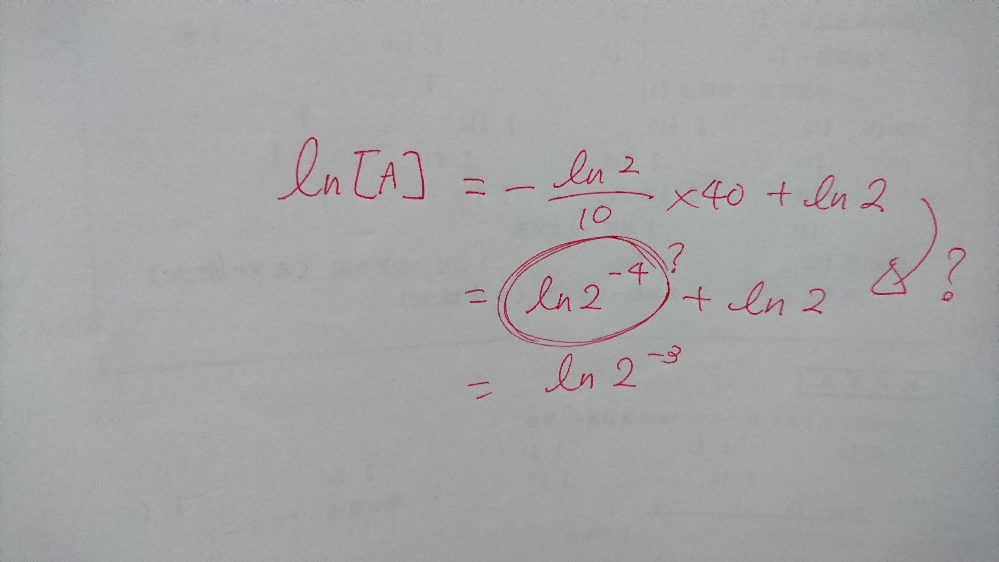 ln[A] = - ln2/10 ×40 + ln2
= ln2^-4 ? + ln2 ?
= ln2^-3